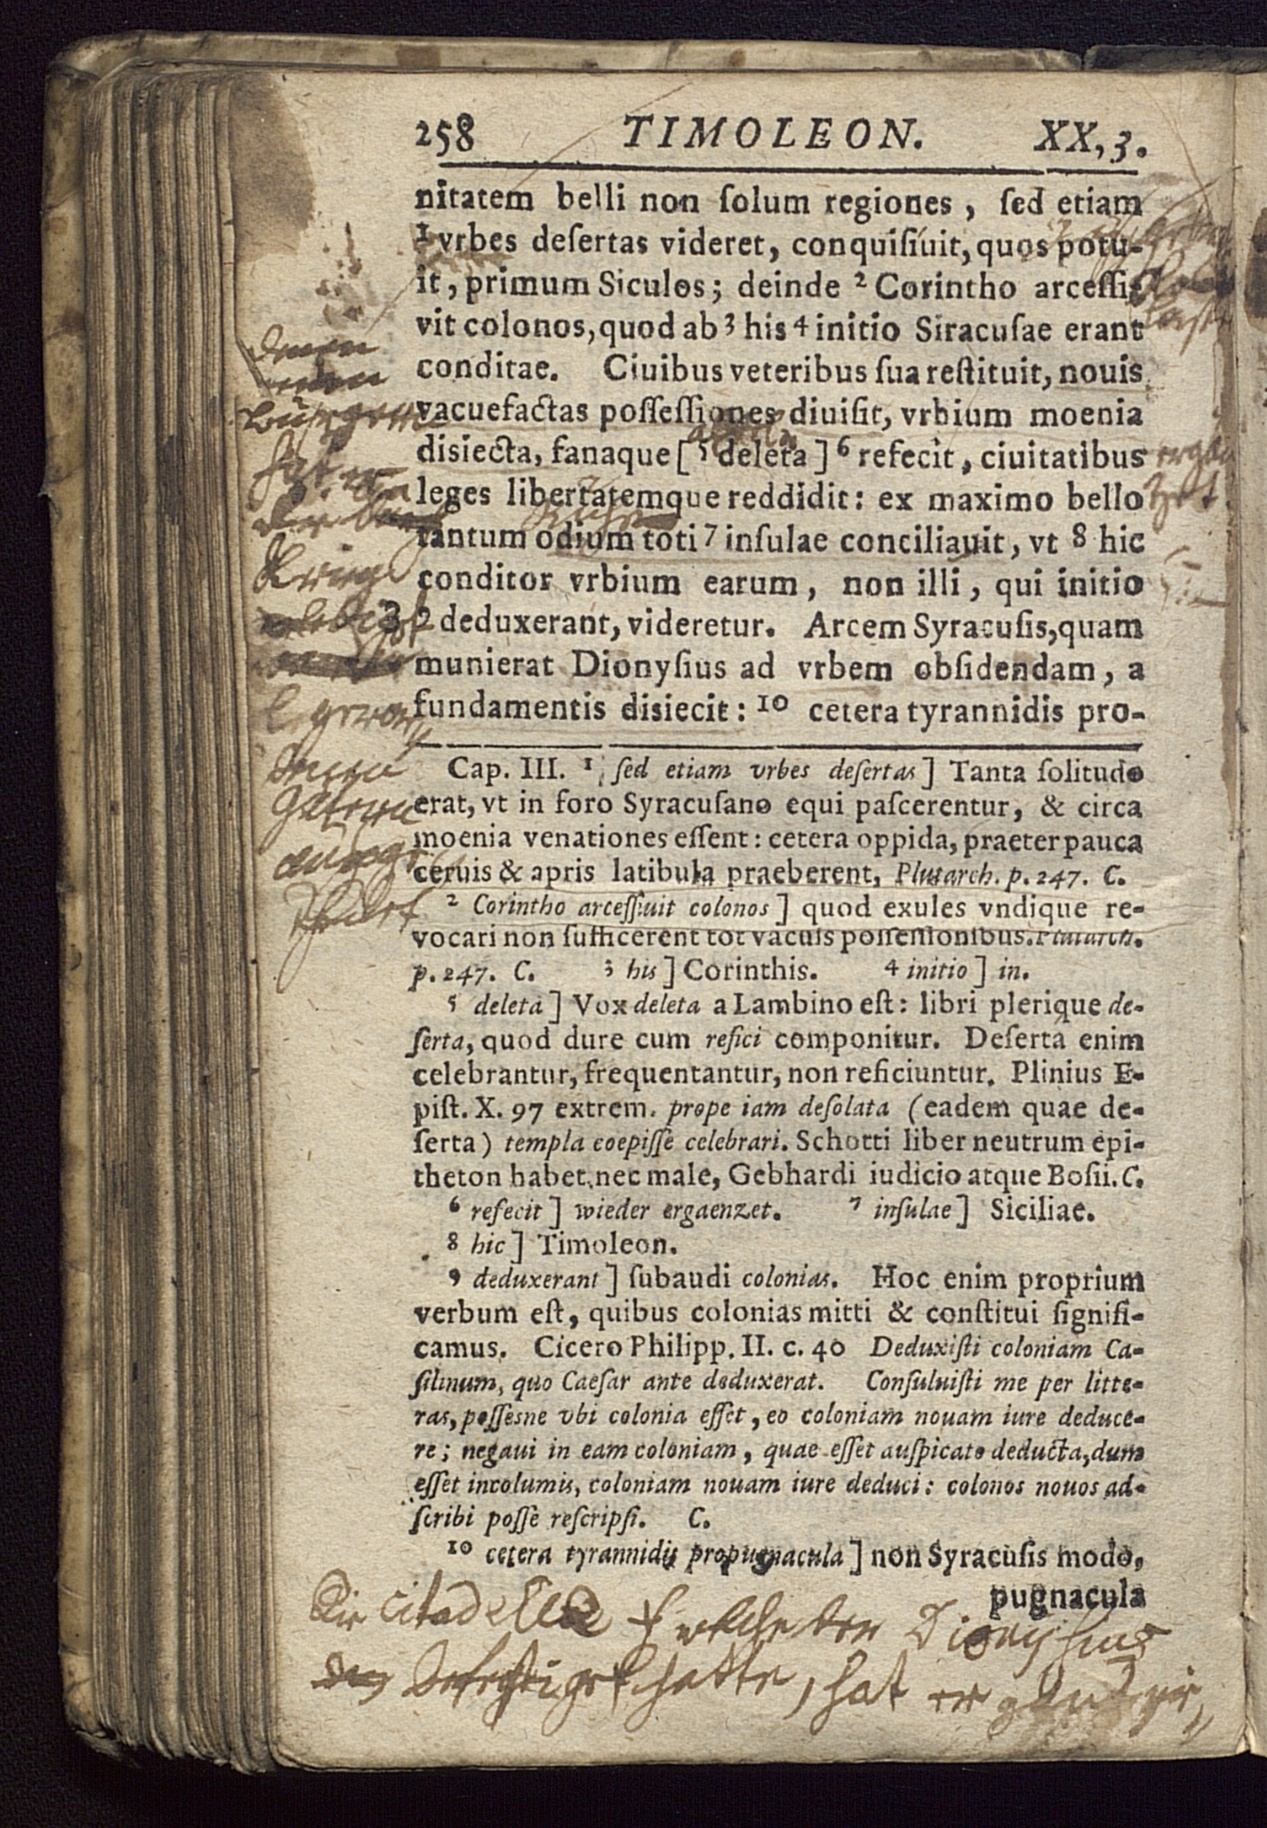 258 TIMOLEON. XX,3.
nitatem belli non ſolum regiones, ſed etiam
¹vrbes deſertas videret, conquiſiuit, quos potu-
it, primum Siculos; deinde ² Corintho arceſſi-
vit colonos, quod ab ³ his ⁴ initio Siracuſae erant
conditae. Ciuibus veteribus ſua reſtituit, nouis
vacuefactas poſſeſſiones diuiſit, vrbium moenia
disiecta, fanaque [⁵ deleta] ⁶ refecit, ciuitatibus
leges libertatemque reddidit: ex maximo bello
tantum odium toti ⁷ inſulae conciliauit, vt ⁸ hic
conditor vrbium earum, non illi, qui initio
3 9 deduxerant, videretur. Arcem Syracuſis, quam
munierat Dionyſius ad vrbem obſidendam, a
fundamentis disiecit: ¹⁰ cetera tyrannidis pro-
Cap. III. ¹ ſed etiam vrbes deſertas] Tanta ſolitudo
erat, vt in foro Syracuſano equi paſcerentur, & circa
moenia venationes eſſent: cetera oppida, praeter pauca
ceruis & apris latibula praeberent, Plutarch. p. 247. C.
² Corintho arceſſiuit colonos] quod exules vndique re-
vocari non ſufficerent tot vacuis poſſeſſionibus. Plutarch.
p. 247. C. ³ his] Corinthis. ⁴ initio] in.
⁵ deleta] Vox deleta a Lambino eſt: libri plerique de-
ſerta, quod dure cum refici componitur. Deſerta enim
celebrantur, frequentantur, non reficiuntur. Plinius E-
piſt. X. 97 extrem. prope iam deſolata (eadem quae de-
ſerta) templa coepiſſe celebrari. Schotti liber neutrum epi-
theton habet, nec male, Gebhardi iudicio atque Boſii. C.
⁶ refecit] wieder ergaenzet. ⁷ inſulae] Siciliae.
⁸ hic] Timoleon.
⁹ deduxerant] ſubaudi colonias. Hoc enim proprium
verbum eſt, quibus colonias mitti & conſtitui ſignifi-
camus. Cicero Philipp. II. c. 40 Deduxiſti coloniam Ca-
ſilinum, quo Caeſar ante deduxerat. Conſuluiſti me per litte-
ras, poſſesne vbi colonia eſſet, eo coloniam nouam iure deduce-
re; negaui in eam coloniam, quae eſſet auſpicato deducta, dum
eſſet incolumis, coloniam nouam iure deduci: colonos nouos ad-
ſcribi poſſe reſcripſi. C.
¹⁰ cetera tyrannidis propugnacula] non Syracuſis modo,
pugnacula
Die citadelle welche der Dionyſius
befeſtiget hatte, hat er